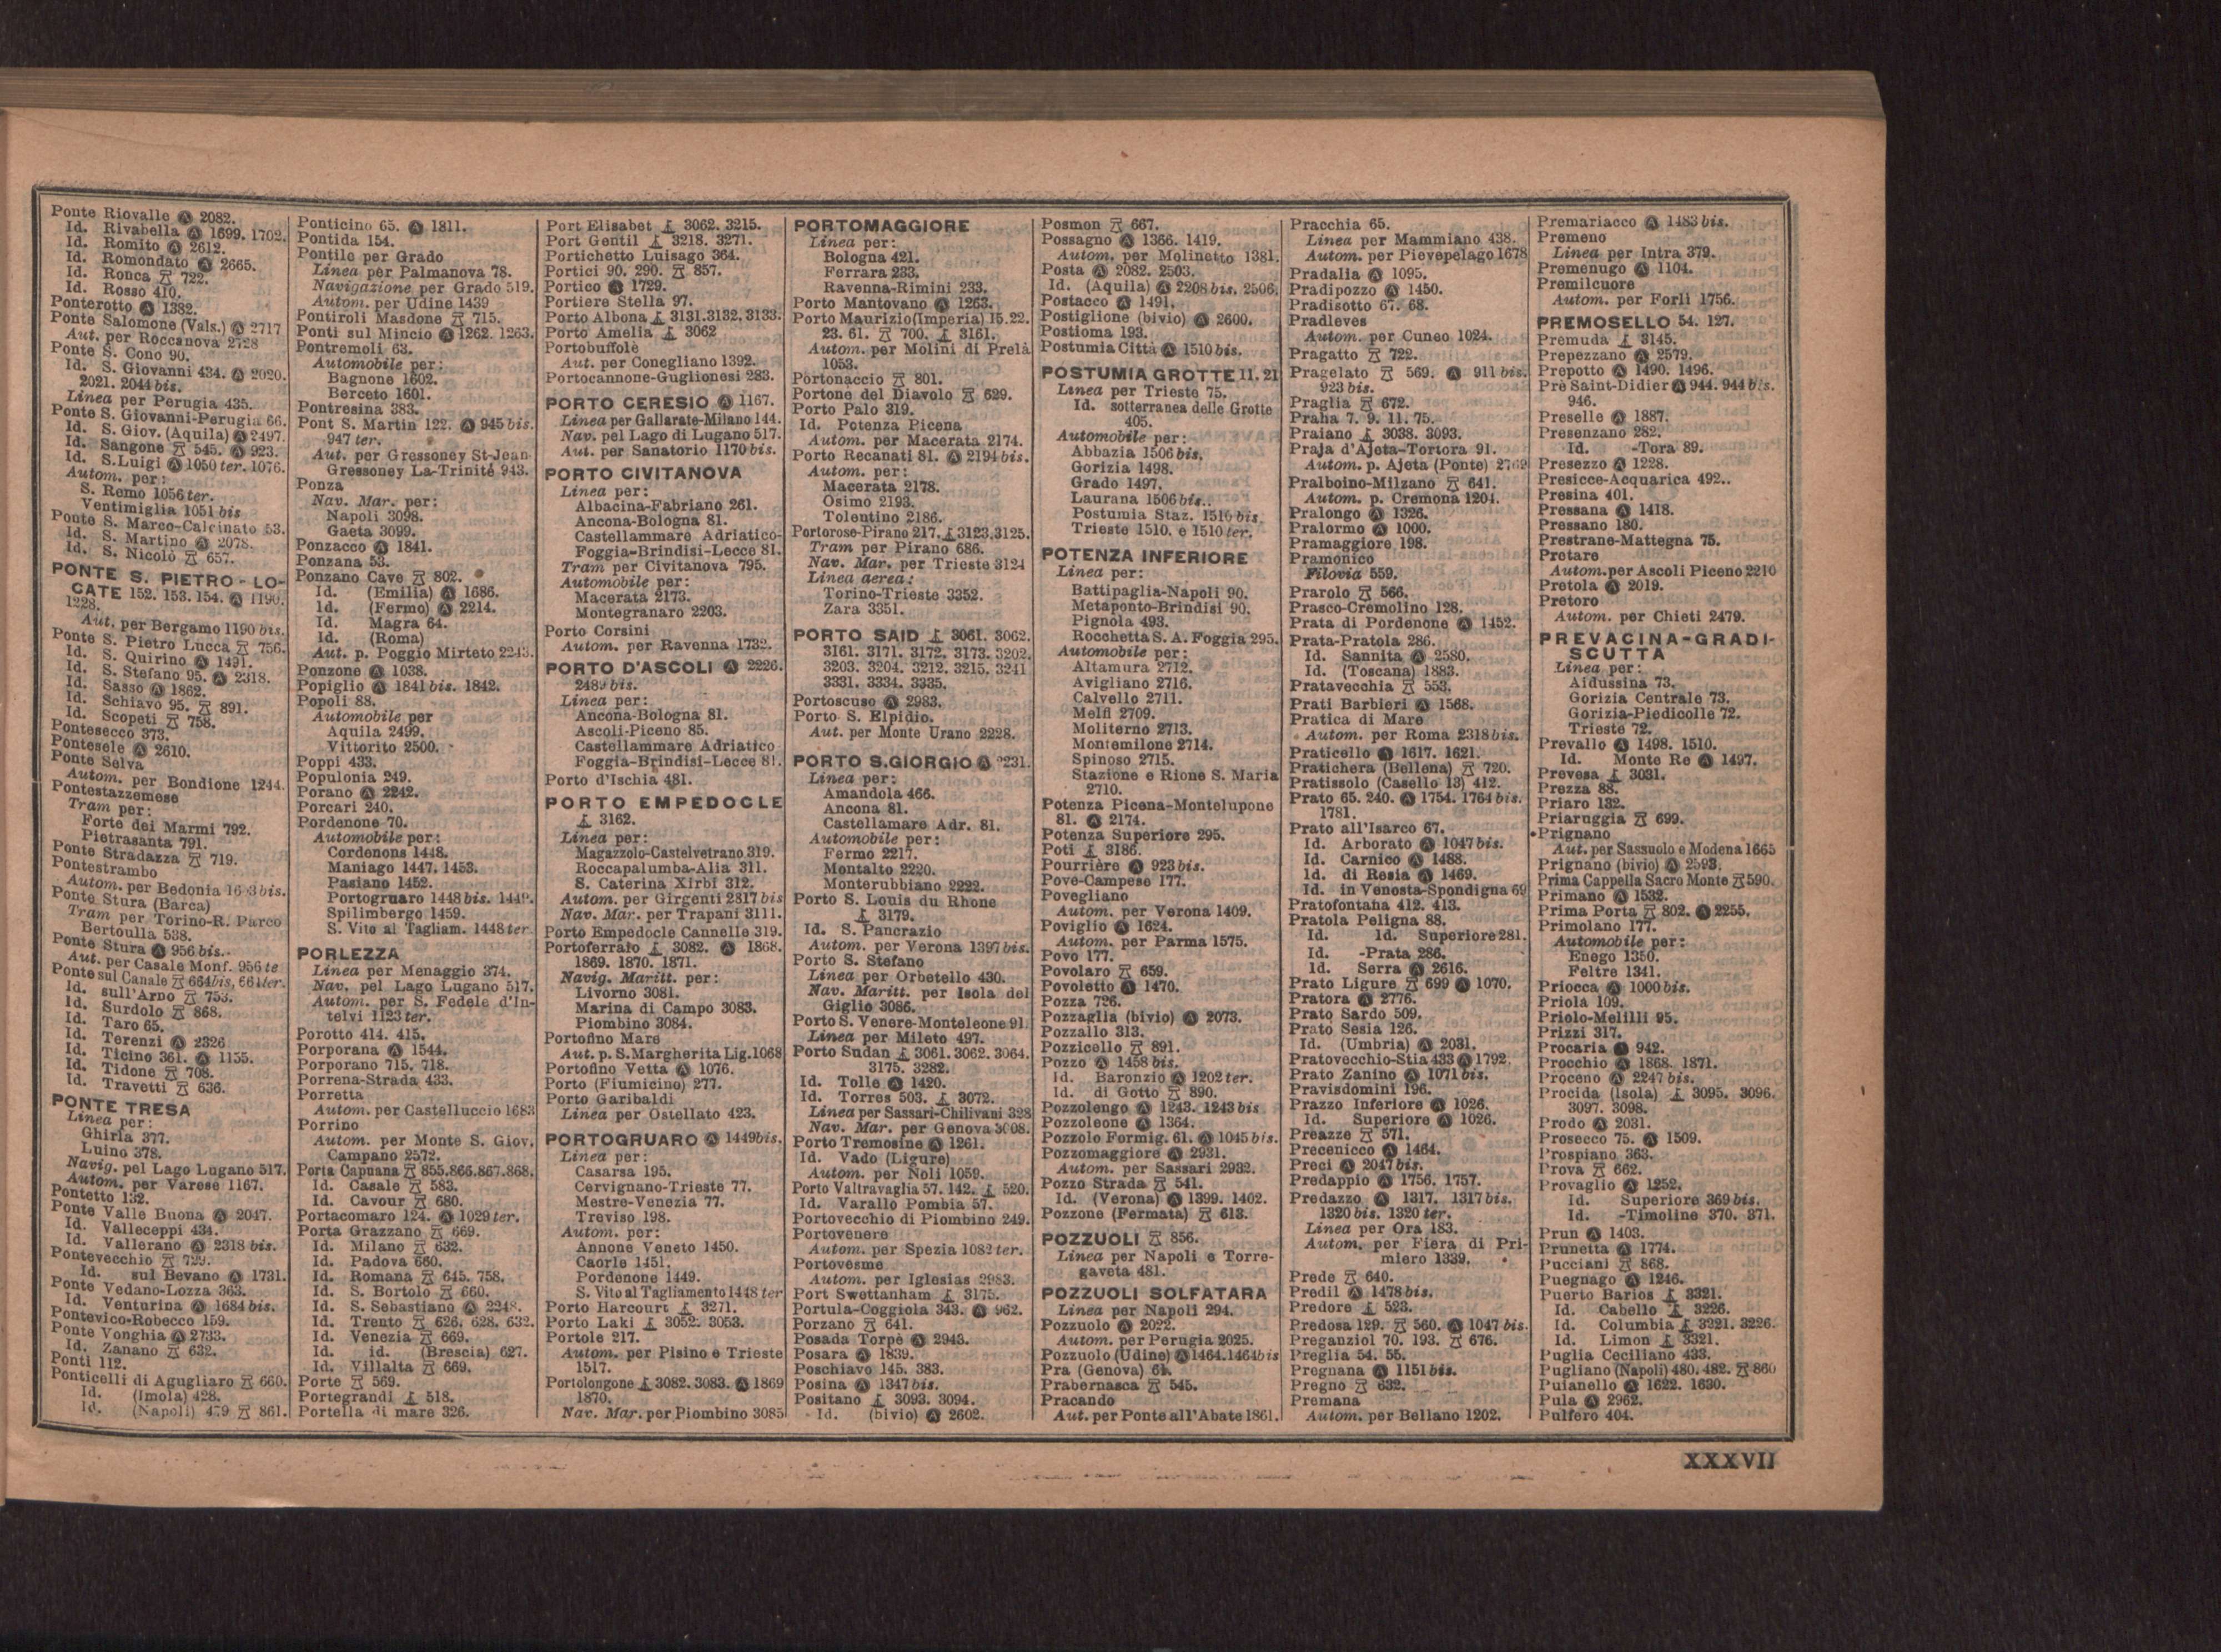 Ponte Riovalle Ⓐ 2082.
Id. Rivabella Ⓐ 1699. 1702.
Id. Romito Ⓐ 2612.
Id. Romondato Ⓐ 2665.
Id. Ronca 722.
Id. Rosso 410.
Ponterotto Ⓐ 1382.
Ponte Salomone (Vals.) Ⓐ 2717
Aut. per Roccanova 2728
Ponte S. Cono 90.
Id. S. Giovanni 434. Ⓐ 2020.
2021. 2044 bis.
Linea per Perugia 435.
Ponte S. Giovanni-Perugia 66.
Id. S. Giov. (Aquila) Ⓐ 2497.
Id. Sangone 545. Ⓐ 923.
Id. S. Luigi Ⓐ 1050 ter. 1076.
Autom. per:
S. Remo 1056 ter.
Ventimiglia 1051 bis
Ponte S. Marco-Calcinato 53.
Id. S. Martino Ⓐ 2078.
Id. S. Nicolò 657.
PONTE S. PIETRO - LO-
CATE 152. 153. 154. Ⓐ 1190.
1228.
Aut. per Bergamo 1190 bis.
Ponte S. Pietro Lucca 756.
Id. S. Quirino Ⓐ 1491.
Id. S. Stefano 95. Ⓐ 2318.
Id. Sasso Ⓐ 1862.
Id. Schiavo 95. 891.
Id. Scopeti 758.
Pontesecco 373.
Pontesele Ⓐ 2610.
Ponte Selva
Autom. per Bondione 1244.
Pontestazzemese
Tram per:
Forte dei Marmi 792.
Pietrasanta 791.
Ponte Stradazza 719.
Pontestrambo
Autom. per Bedonia
Ponte Stura (Barca)
Tram per Torino-R. Parco
Bertoulla 538.
Ponte Stura Ⓐ 956 bis.
Aut. per Casale Monf. 956 te
Ponte sul Canale 664 bis, 664 ter.
Id. sull'Arno 753.
Id. Surdolo 868.
Id. Taro 65.
Id. Terenzi Ⓐ 2326
Id. Ticino 361. Ⓐ 1155.
Id. Tidone 708.
Id. Travetti 636.
PONTE TRESA
Linea per:
Ghirla 377.
Luino 378.
Navig. pel Lago Lugano 517.
Autom. per Varese 1167.
Pontetto 132.
Ponte Valle Buona Ⓐ 2047.
Id. Valleceppi 434.
Id. Vallerano Ⓐ 2318 bis.
Pontevecchio 729.
Id. sul Bevano Ⓐ 1731.
Ponte Vedano-Lozza 363.
Id. Venturina Ⓐ 1684 bis.
Pontevico-Robecco 159.
Ponte Vonghia Ⓐ 2733.
Id. Zanano 632.
Ponti 112.
Ponticelli di Agugliaro 660.
Id. (Imola) 428.
Id. (Napoli) 479 861.
Ponticino 65. Ⓐ 1811.
Pontida 154.
Pontile per Grado
Linea per Palmanova 78.
Navigazione per Grado 519.
Autom. per Udine 1439
Pontiroli Masdone 715.
Ponti sul Mincio Ⓐ 1262. 1263.
Pontremoli 63.
Automobile per:
Bagnone 1602.
Berceto 1601.
Pontresina 383.
Pont S. Martin 122. Ⓐ 945 bis.
947 ter.
Aut. per Gressoney St-Jean
Gressoney La-Trinité 943.
Ponza
Nav. Mar. per:
Napoli 3098.
Gaeta 3099.
Ponzacco Ⓐ 1841.
Ponzana 53.
Ponzano Cave 802.
Id. (Emilia) Ⓐ 1686.
Id. (Fermo) Ⓐ 2214.
Id. Magra 64.
Id. (Roma)
Aut. p. Poggio Mirteto 2243.
Ponzone Ⓐ 1038.
Popiglio Ⓐ 1841 bis. 1842.
Popoli 88.
Automobile per
Aquila 2499.
Vittorito 2500.
Poppi 433.
Populonia 249.
Porano Ⓐ 2242.
Porcari 240.
Pordenone 70.
Automobile per:
Cordenons 1448.
Maniago 1447. 1453.
Pasiano 1452.
Portogruaro 1448 bis. 1449.
Spilimbergo 1459.
S. Vito al Tagliam. 1448 ter
PORLEZZA
Linea per Menaggio 374.
Nav. pel Lago Lugano 517.
Autom. per S. Fedele d'In-
telvi 1123 ter.
Porotto 414. 415.
Porporana Ⓐ 1544.
Porporano 715. 718.
Porrena-Strada 433.
Porretta
Autom. per Castelluccio 1683
Porrino
Autom. per Monte S. Giov.
Campano 2572.
Porta Capuana 855.866.867.868.
Id. Casale 583.
Id. Cavour 680.
Portacomaro 124. Ⓐ 1029 ter.
Porta Grazzano 669.
Id. Milano 632.
Id. Padova 660.
Id. Romana 645. 758.
Id. S. Bortolo 660.
Id. S. Sebastiano Ⓐ 2248.
Id. Trento 626. 628. 632.
Id. Venezia 669.
Id. id. (Brescia) 627.
Id. Villalta 669.
Porte 569.
Portegrandi 518.
Portella di mare 326.
Port Elisabet 3062. 3215.
Port Gentil 3218. 3271.
Portichetto Luisago 364.
Portici 90. 290. 857.
Portico Ⓐ 1729.
Portiere Stella 97.
Porto Albona 3131.3132. 3133.
Porto Amelia 3062
Portobuffolè
Aut. per Conegliano 1392.
Portocannone-Guglionesi 283.
PORTO CERESIO Ⓐ 1167.
Linea per Gallarate-Milano 144.
Nav. pel Lago di Lugano 517.
Aut. per Sanatorio 1170 bis.
PORTO CIVITANOVA
Linea per:
Albacina-Fabriano 261.
Ancona-Bologna 81.
Castellammare Adriatico-
Foggia-Brindisi-Lecce 81.
Tram per Civitanova 795.
Automobile per:
Macerata 2173.
Montegranaro 2203.
Porto Corsini
Autom. per Ravenna 1732.
PORTO D'ASCOLI Ⓐ 2226.
bis.
Linea per:
Ancona-Bologna 81.
Ascoli-Piceno 85.
Castellammare Adriatico
Foggia-Brindisi-Lecce 81.
Porto d'Ischia 481.
PORTO EMPEDOCLE
3162.
Linea per:
Magazzolo-Castelvetrano 319.
Roccapalumba-Alia 311.
S. Caterina Xirbi 312.
Autom. per Girgenti 2817 bis
Nav. Mar. per Trapani 3111.
Porto Empedocle Cannelle 319.
Portoferraio 3082. Ⓐ 1868.
1869. 1870. 1871.
Navig. Maritt. per:
Livorno 3081.
Marina di Campo 3083.
Piombino 3084.
Portofino Mare
Aut. p. S. Margherita Lig. 1068
Portofino Vetta Ⓐ 1076.
Porto (Fiumicino) 277.
Porto Garibaldi
Linea per Ostellato 423.
PORTOGRUARO Ⓐ 1449 bis.
Linea per:
Casarsa 195.
Cervignano-Trieste 77.
Mestre-Venezia 77.
Treviso 198.
Autom. per:
Annone Veneto 1450.
Caorle 1451.
Pordenone 1449.
S. Vito al Tagliamento 1448 ter
Porto Harcourt 3271.
Porto Laki 3052. 3053.
Portole 217.
Autom. per Pisino e Trieste
1517.
Portolongone 3082. 3083. Ⓐ 1869
1870.
Nav. Mar. per Piombino 3085
PORTOMAGGIORE
Linea per:
Bologna 421.
Ferrara 233.
Ravenna-Rimini 233.
Porto Mantovano Ⓐ 1263.
Porto Maurizio (Imperia) 15.22.
23. 61. 700. 3161.
Autom. per Molini di Prelà
1053.
Portonaccio 801.
Portone del Diavolo 629.
Porto Palo 319.
Id. Potenza Picena
Autom. per Macerata 2174.
Porto Recanati 81. Ⓐ 2194 bis.
Autom. per:
Macerata 2178.
Osimo 2193.
Tolentino 2186.
Portorose-Pirano 217. 3123.3125.
Tram per Pirano 686.
Nav. Mar. per Trieste 3124
Linea aerea:
Torino-Trieste 3352.
Zara 3351.
PORTO SAID 3061. 3062.
3161. 3171. 3172. 3173. 3202.
3203. 3204. 3212. 3215. 3241
3331. 3334. 3335.
Portoscuso Ⓐ 2983.
Porto S. Elpidio.
Aut. per Monte Urano 2228.
PORTO S. GIORGIO Ⓐ 2231.
Linea per:
Amandola 466.
Ancona 81.
Castellamare Adr. 81.
Automobile per:
Fermo 2217.
Montalto 2220.
Monterubbiano 2222.
Porto S. Louis du Rhone
3179.
Id. S. Pancrazio
Autom. per Verona 1397 bis.
Porto S. Stefano
Linea per Orbetello 430.
Nav. Maritt. per Isola del
Giglio 3086.
Porto S. Venere-Monteleone 91
Linea per Mileto 497.
Porto Sudan 3061. 3062. 3064.
3175. 3282.
Id. Tolle Ⓐ 1420.
Id. Torres 503. 3072.
Linea per Sassari-Chilivani 328
Nav. Mar. per Genova 3008.
Porto Tremosine Ⓐ 1261.
Id. Vado (Ligure)
Autom. per Noli 1059.
Porto Valtravaglia 57. 142. 520.
Id. Varallo Pombia 57.
Portovecchio di Piombino 249.
Portovenere
Autom. per Spezia 1082 ter.
Portovesme
Autom. per Iglesias 2983.
Port Swettanham 3175.
Portula-Coggiola 343. Ⓐ 962.
Porzano 641.
Posada Torpè Ⓐ 2943.
Posara Ⓐ 1839.
Poschiavo 145. 383.
Posina Ⓐ 1347 bis.
Positano 3093. 3094.
Id. (bivio) Ⓐ 2602.
Posmon 667.
Possagno Ⓐ 1366. 1419.
Autom. per Molinetto 1381.
Posta Ⓐ 2082. 2503.
Id. (Aquila) Ⓐ 2208 bis. 2506.
Postacco Ⓐ 1491.
Postiglione (bivio) Ⓐ 2600.
Postioma 193.
Postumia Città Ⓐ 1510 bis.
POSTUMIA GROTTE 11. 21
Linea per Trieste 75.
Id. sotterranea delle Grotte
405.
Automobile per:
Abbazia 1506 bis.
Gorizia 1498.
Grado 1497.
Laurana 1506 bis.
Postumia Staz. 1510 bis
Trieste 1510. e 1510 ter.
POTENZA INFERIORE
Linea per:
Battipaglia-Napoli 90.
Metaponto-Brindisi 90.
Pignola 493.
Rocchetta S. A. Foggia 295.
Automobile per:
Altamura 2712.
Avigliano 2716.
Calvello 2711.
Melfi 2709.
Moliterno 2713.
Montemilone 2714.
Spinoso 2715.
Stazione e Rione S. Maria
2710.
Potenza Picena-Montelupone
81. Ⓐ 2174.
Potenza Superiore 295.
Poti 3186.
Pourrière Ⓐ 923 bis.
Pove-Campese 177.
Povegliano
Autom. per Verona 1409.
Poviglio Ⓐ 1624.
Autom. per Parma 1575.
Povo 177.
Povolaro 659.
Povoletto Ⓐ 1470.
Pozza 726.
Pozzaglia (bivio) Ⓐ 2073.
Pozzallo 313.
Pozzicello 891.
Pozzo Ⓐ 1458 bis.
Id. Baronzio Ⓐ 1202 ter.
Id. di Gotto 890.
Pozzolengo Ⓐ 1243. 1243 bis
Pozzoleone Ⓐ 1364.
Pozzolo Formig. 61. Ⓐ 1045 bis.
Pozzomaggiore Ⓐ 2931.
Autom. per Sassari 2932.
Pozzo Strada 541.
Id. (Verona) Ⓐ 1399. 1402.
Pozzone (Fermata) 613.
POZZUOLI 856.
Linea per Napoli e Torre-
gaveta 481.
POZZUOLI SOLFATARA
Linea per Napoli 294.
Pozzuolo Ⓐ 2022.
Autom. per Perugia 2025.
Pozzuolo (Udine) Ⓐ 1464.1464 bis
Pra (Genova) 61.
Prabernasca 545.
Pracando
Aut. per Ponte all'Abate 1861.
Pracchia 65.
Linea per Mammiano 438.
Autom. per Pievepelago 1678
Pradalia Ⓐ 1095.
Pradipozzo Ⓐ 1450.
Pradisotto 67. 68.
Pradleves
Autom. per Cuneo 1024.
Pragatto 722.
Pragelato 569. Ⓐ 911 bis.
923 bis.
Praglia 672.
Praha 7. 9. 11. 75.
Praiano 3038. 3093.
Praja d'Ajeta-Tortora 91.
Autom. p. Ajeta (Ponte) 2769
Pralboino-Milzano 641.
Autom. p. Cremona 1204.
Pralongo Ⓐ 1326.
Pralormo Ⓐ 1000.
Pramaggiore 198.
Pramonico
Filovia 559.
Prarolo 566.
Prasco-Cremolino 128.
Prata di Pordenone Ⓐ 1452.
Prata-Pratola 286.
Id. Sannita Ⓐ 2580.
Id. (Toscana) 1883.
Pratavecchia 553.
Prati Barbieri Ⓐ 1568.
Pratica di Mare
Autom. per Roma 2318 bis.
Praticello Ⓐ 1617. 1621.
Pratichera (Bellena) 720.
Pratissolo (Casello 13) 412.
Prato 65. 240. Ⓐ 1754. 1764 bis.
1781.
Prato all'Isarco 67.
Id. Arborato Ⓐ 1047 bis.
Id. Carnico Ⓐ 1488.
Id. di Resia Ⓐ 1469.
Id. in Venosta-Spondigna 69
Pratofontana 412. 413.
Pratola Peligna 88.
Id. Id. Superiore 281.
Id. -Prata 286.
Id. Serra Ⓐ 2616.
Prato Ligure 699 Ⓐ 1070.
Pratora Ⓐ 2776.
Prato Sardo 509.
Prato Sesia 126.
Id. (Umbria) Ⓐ 2031.
Pratovecchio-Stia 433 Ⓐ 1792.
Prato Zanino Ⓐ 1071 bis.
Pravisdomini 196.
Prazzo Inferiore Ⓐ 1026.
Id. Superiore Ⓐ 1026.
Preazze 571.
Precenicco Ⓐ 1464.
Preci Ⓐ 2047 bis.
Predappio Ⓐ 1756. 1757.
Predazzo Ⓐ 1317. 1317 bis.
1320 bis. 1320 ter.
Linea per Ora 183.
Autom. per Fiera di Pri-
miero 1339.
Prede 640.
Predil Ⓐ 1478 bis.
Predore 523.
Predosa 129. 560. Ⓐ 1047 bis.
Preganziol 70. 193. 676.
Preglia 54. 55.
Pregnana Ⓐ 1151 bis.
Pregno 632.
Premana
Autom. per Bellano 1202.
Premariacco Ⓐ 1483 bis.
Premeno
Linea per Intra 379.
Premenugo Ⓐ 1104.
Premilcuore
Autom. per Forlì 1756.
PREMOSELLO 54. 127.
Premuda 3145.
Prepezzano Ⓐ 2579.
Prepotto Ⓐ 1490. 1496.
Prè Saint-Didier Ⓐ 944. 944 bis.
946.
Preselle Ⓐ 1887.
Presenzano 282.
Id. -Tora 89.
Presezzo Ⓐ 1228.
Presicce-Acquarica 492..
Presina 401.
Pressana Ⓐ 1418.
Pressano 180.
Prestrane-Mattegna 75.
Pretare
Autom. per Ascoli Piceno 2210
Pretola Ⓐ 2019.
Pretoro
Autom. per Chieti 2479.
PREVACINA-GRADI-
SCUTTA
Linea per:
Aidussina 73.
Gorizia Centrale 73.
Gorizia-Piedicolle 72.
Trieste 72.
Prevallo Ⓐ 1498. 1510.
Id. Monte Re Ⓐ 1497.
Prevesa 3031.
Prezza 88.
Priaro 132.
Priaruggia 699.
•Prignano
Aut. per Sassuolo e Modena 1665
Prignano (bivio) Ⓐ 2593.
Prima Cappella Sacro Monte 590.
Primano Ⓐ 1532.
Prima Porta 802. Ⓐ 2255.
Primolano 177.
Automobile per:
Enego 1350.
Feltre 1341.
Priocca Ⓐ 1000 bis.
Priola 109.
Priolo-Melilli 95.
Prizzi 317.
Procaria Ⓐ 942.
Procchio Ⓐ 1868. 1871.
Proceno Ⓐ 2247 bis.
Procida (Isola) 3095. 3096.
3097. 3098.
Prodo Ⓐ 2031.
Prosecco 75. Ⓐ 1509.
Prospiano 363.
Prova 662.
Provaglio Ⓐ 1252.
Id. Superiore 369 bis.
Id. -Timoline 370. 371.
Prun Ⓐ 1403.
Prunetta Ⓐ 1774.
Pucciani 868.
Puegnago Ⓐ 1246.
Puerto Barios 3321.
Id. Cabello 3226.
Id. Columbia 3221. 3226.
Id. Limon 3321.
Puglia Ceciliano 433.
Pugliano (Napoli) 480. 482. 860
Puianello Ⓐ 1622. 1630.
Pula Ⓐ 2962.
Pulfero 404.
XXXVII